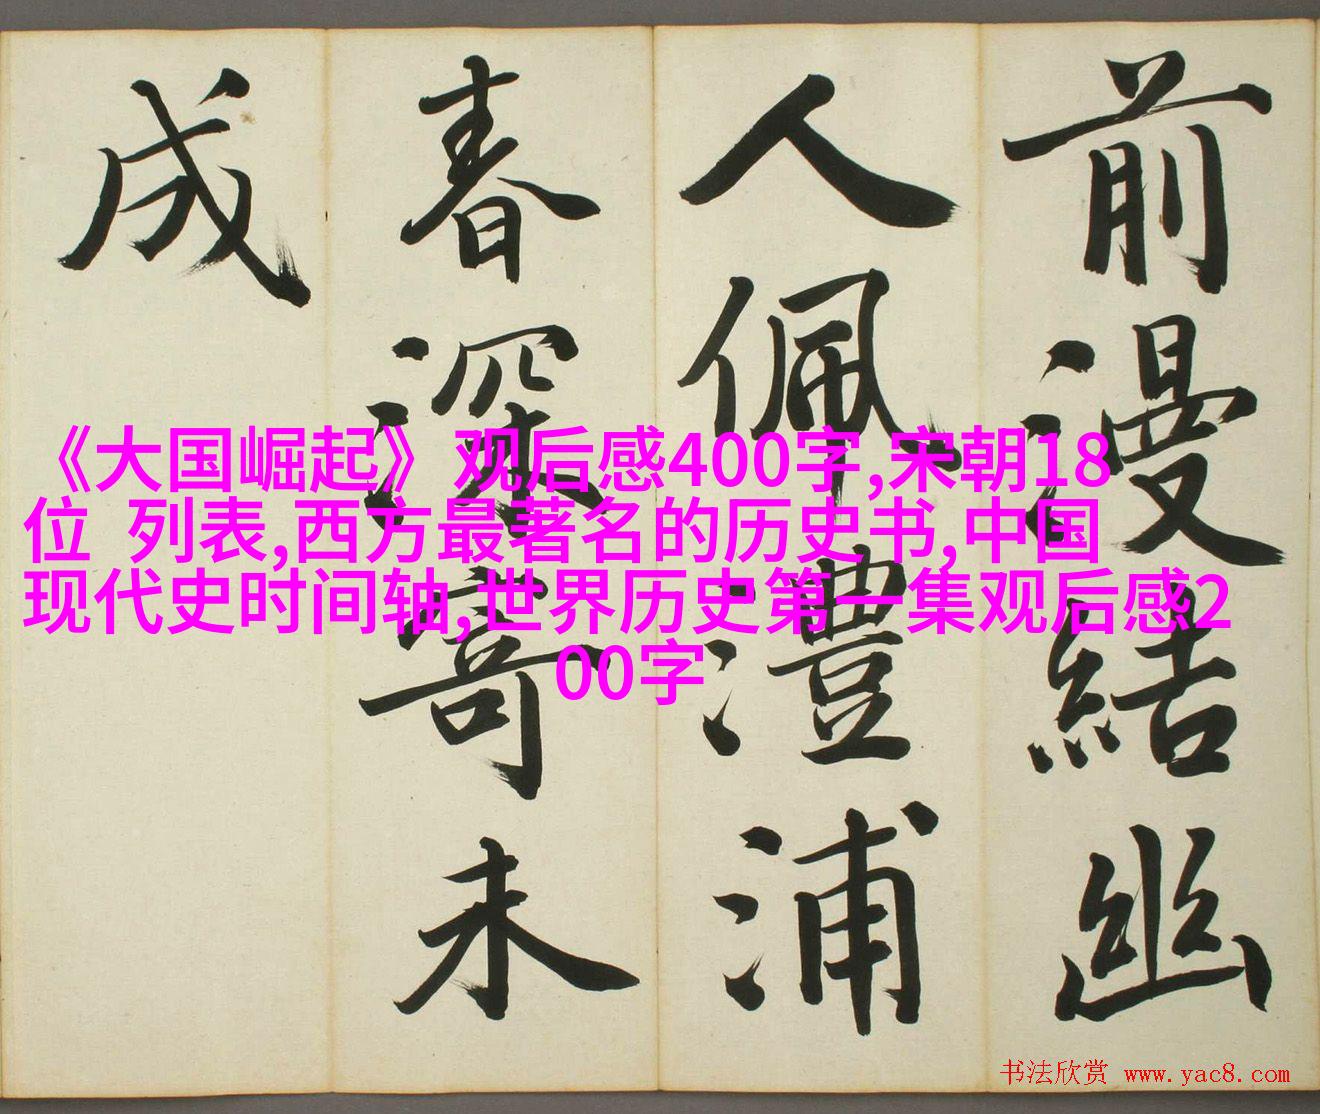 前漫結幽
人佩澧浦
春深寄未
成
《大国崛起》观后感400字,宋朝18
位 列表,西方最著名的历史书,中国
现代史时间轴,世界历史第一集观后感2
00字
书法欣赏 www.yac8.com